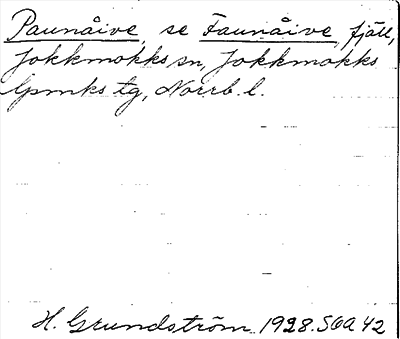 Paunåive, se Faunåive, fjäll,
Jokkmokks sn, Jokkmokks
lpmks tg, Norrb. l.
H. Grundström 1928. S6a 42